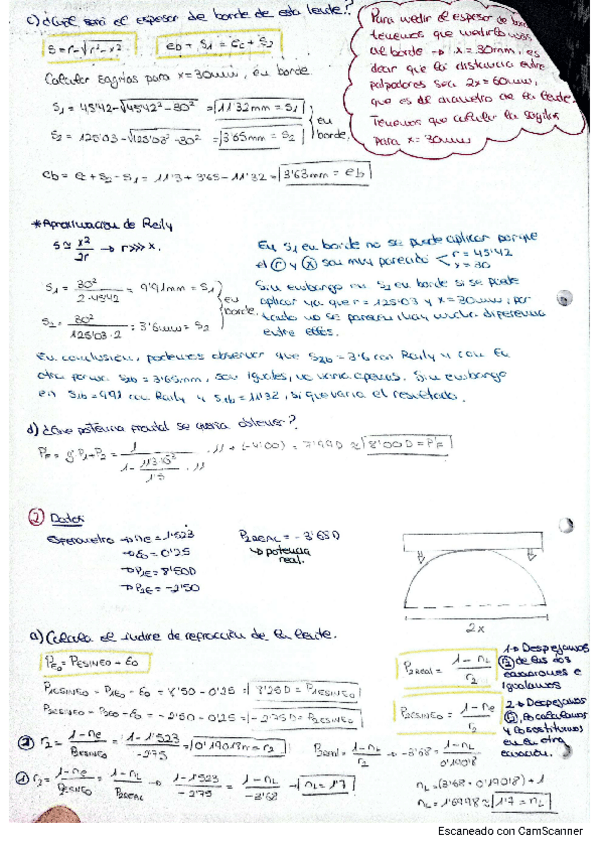 c) ¿Cuál será el espesor de borde de esta lente?
S = r - √r² - x²
eb + S1 = ec + S2
Calcular sagitas para x = 30mm, en borde.
S1 = 45'42 - √45'42² - 30² = 11'32mm = S1
S2 = 125'03 - √125'03² - 30² = 3'65mm = S2
en borde.
eb = ec + S2 - S1 = 11'3 + 3'65 - 11'32 = 3'63mm = eb
Para medir el espesor de borde
tenemos que medirlo
al borde → x = 30mm, es
decir que la distancia entre
palpadores sea 2x = 60mm,
que es el diámetro de la lente.
Tenemos que calcular la sagita
para x = 30mm
*Aproximación de Raily
S ≅ x²/2r → r >>> x.
S1 = 30²/2·45'42 = 9'91mm = S1
S2 = 30²/125'03·2 = 3'6mm = S2
en borde.
En S1 en borde no se puede aplicar porque
el r y x son muy parecido r = 45'42 x = 30
Sin embargo en S2 en borde si se puede
aplicar ya que r = 125'03 y x = 30mm, por
tanto no se parecen, hay mucha diferencia
entre ellos.
En conclusión, podemos observar que S2b = 3'6 con Raily y con la
otra S2b = 3'65mm, son iguales, no varía apenas. Sin embargo
en S1b = 9'91 con Raily y S1b = 11'32, si que varía el resultado.
d) ¿Que potencia frontal se quería obtener?
PF = g P1 + P2 = 1/1 - 11'3·10⁻³/1'5 · 11 · 11 + (-4'00) = 7'99D ≈ 8'00D = PF
2 Datos
Esferometro → ne = 1'523
→ E0 = 0'25
→ P1E = 8'50D
→ P2E = -2'50
P2REAL = -3'65D
↳ potencia
real.
2x
a) Calcula el índice de refracción de la lente.
PE0 = PESINE0 - E0
P1ESINE0 = P1E0 - E0 = 8'50 - 0'25 = 8'25D = P1ESINE0
P2ESINE0 = P2E0 - E0 = -2'50 - 0'25 = -2'75D = P2ESINE0
P2REAL = 1 - nL/r2
P2ESINE0 = 1 - ne/r2
1 → Despejamos
r2 de las dos
ecuaciones e
igualamos
2 → Despejamos
r2, lo calculamos
y lo sustituimos
en la otra
ecuación.
2 r2 = 1 - ne/PESINE0 = 1 - 1'523/-2'75 = 0'19018m = r2
P2real = 1 - nL/r2 → -3'68 = 1 - nL/0'19018
1 r2 = 1 - ne/PESINE0 = 1 - nL/P2REAL → 1 - 1'523/-2'75 = 1 - nL/-3'68 → nL = 1'7
nL = (3'68 · 0'19018) + 1
nL = 1'6998 ≈ 1'7 = nL
Escaneado con CamScanner